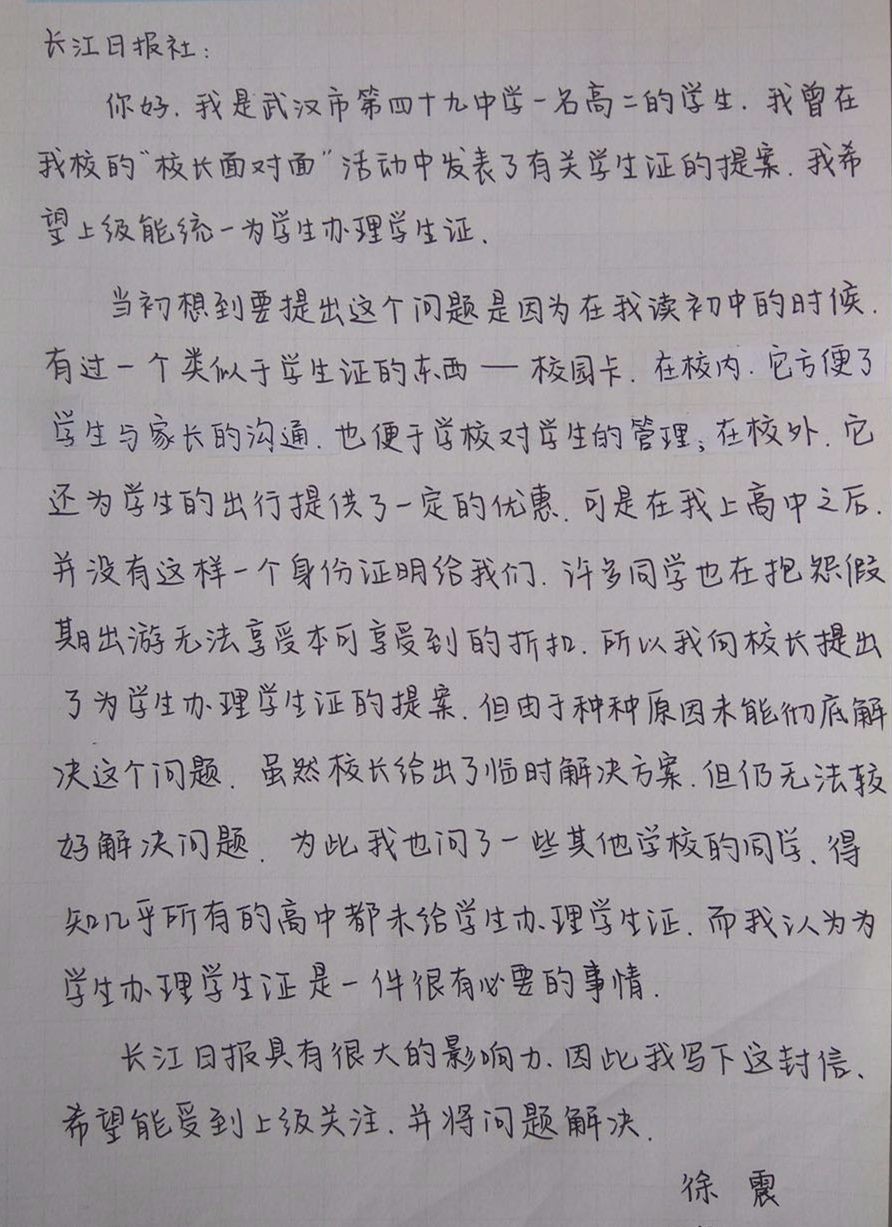 长江日报社：
你好．我是武汉市第四十九中学一名高二的学生．我曾在
我校的“校长面对面”活动中发表了有关学生证的提案．我希
望上级能统一为学生办理学生证．
当初想到要提出这个问题是因为在我读初中的时候．
有过一个类似于学生证的东西——校园卡．在校内．它方便了
学生与家长的沟通．也便于学校对学生的管理；在校外．它
还为学生的出行提供了一定的优惠．可是在我上高中之后．
并没有这样一个身份证明给我们．许多同学也在抱怨假
期出游无法享受本可享受到的折扣．所以我向校长提出
了为学生办理学生证的提案．但由于种种原因未能彻底解
决这个问题．虽然校长给出了临时解决方案．但仍无法较
好解决问题．为此我也问了一些其他学校的同学、得
知几乎所有的高中都未给学生办理学生证．而我认为为
学生办理学生证是一件很有必要的事情．
长江日报具有很大的影响力．因此我写下这封信、
希望能受到上级关注．并将问题解决．
徐震